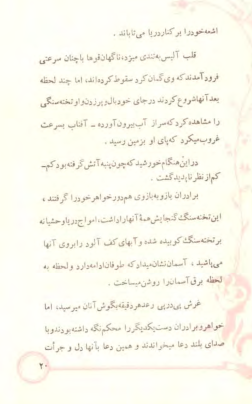 اشعه خود را بر کنار دریا می تابانید.
قلب آلیس به تندی میزد، ناگهان قوها با چنان سرعتی
فرود آمدند که وی گمان کرد سقوط کرده اند، اما چند لحظه
بعد آنها شروع کردند در جای خود بال و پر زدن و او تخته سنگی
را مشاهده کرد که سر از آب بیرون آورده ـ آفتاب بسرعت
غروب میکرد که پای او بزمین رسید.
در این هنگام خورشید که چون پنبه آتش گرفته بود کم ـ
کم از نظر ناپدید گشت.
برادران بازو به بازوی هم دور خواهر خود را گرفتند،
این تخته سنگ گنجایش همهٔ آنها را داشت، امواج دریا وحشیانه
بر تخته سنگ کوبیده شده و آبهای کف آلود را بروی آنها
می پاشید، آسمان نشان میداد که طوفان ادامه دارد و لحظه به
لحظه برق آسمان را روشن میساخت.
غرش پی در پی رعد هر دقیقه بگوش آنان میرسید، اما
خواهر و برادران دست یکدیگر را محکم نگه داشته بودند و با
صدای بلند دعا میخواندند و همین دعا بآنها دل و جرأت
۲۰